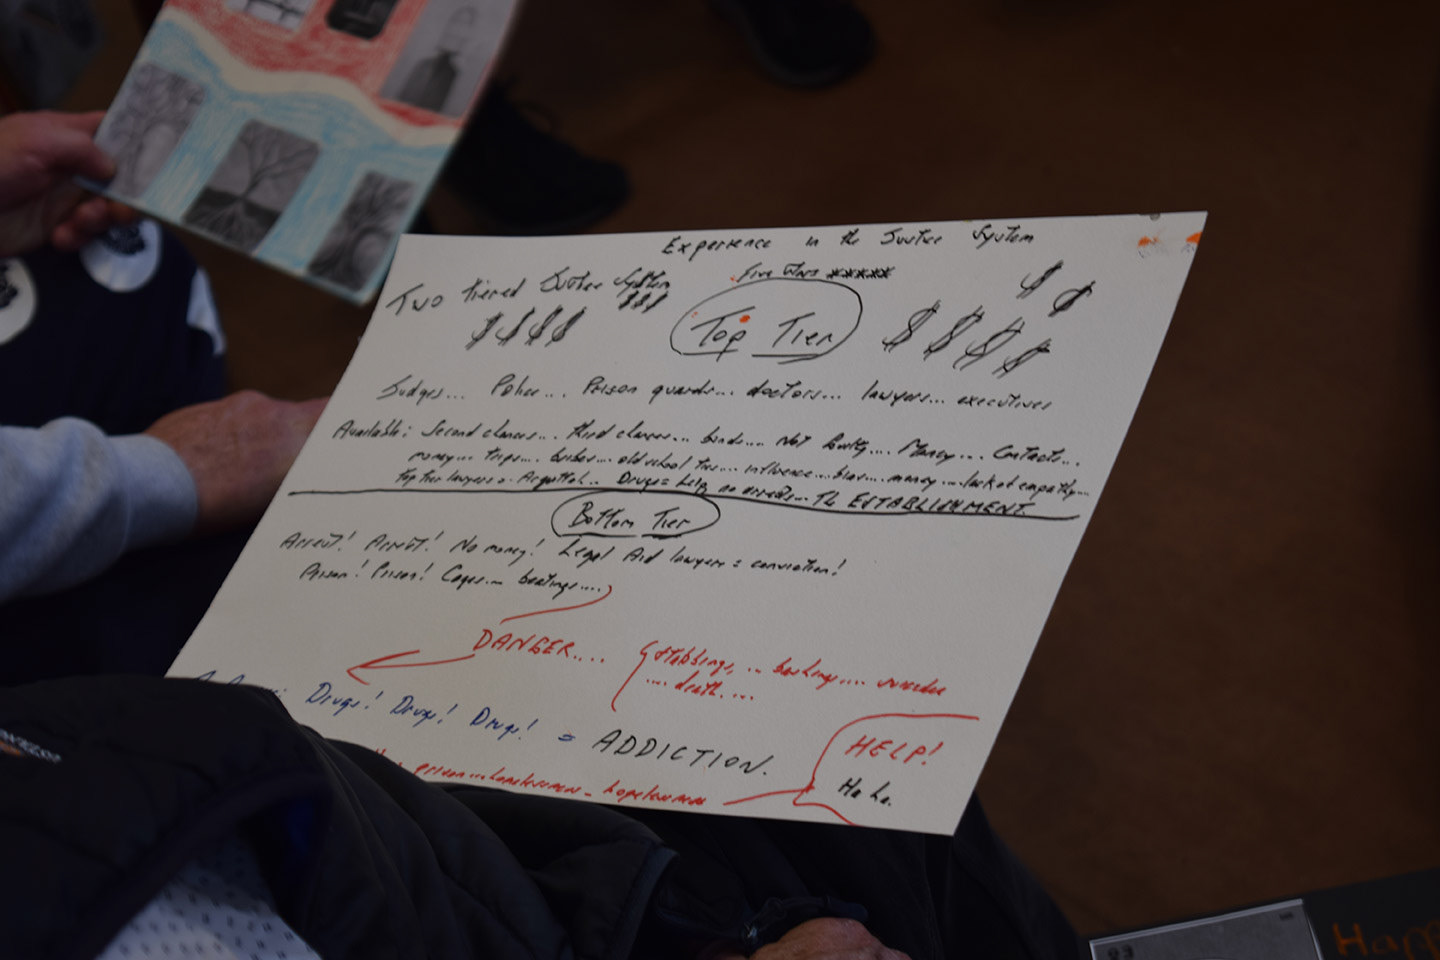 Experience in the Justice System
Two tiered Justice System
$$$
Five *****
$$$$
Top Tier
$$
$$$$
Judges... Police... Prison guards... doctors... lawyers... executives
Available: Second chances... third chances... bonds... Not Guilty.... Money.... Contacts...
money... trips.... bribes.... old school ties.... influence... bias.... money.... lack of empathy...
top tier lawyers = Acquittal... Drugs = help, no arrests... The ESTABLISHMENT.
Bottom Tier
Arrest! Arrest! No money! Legal Aid lawyers = conviction!
Prison! Prison! Cages.... beatings....
DANGER....
stabbings, ... beatings.... suicide
.... death....
Drugs! Drugs! Drugs! = ADDICTION.
prison... homelessness - hopelessness
HELP!
Ha ha.
Happ